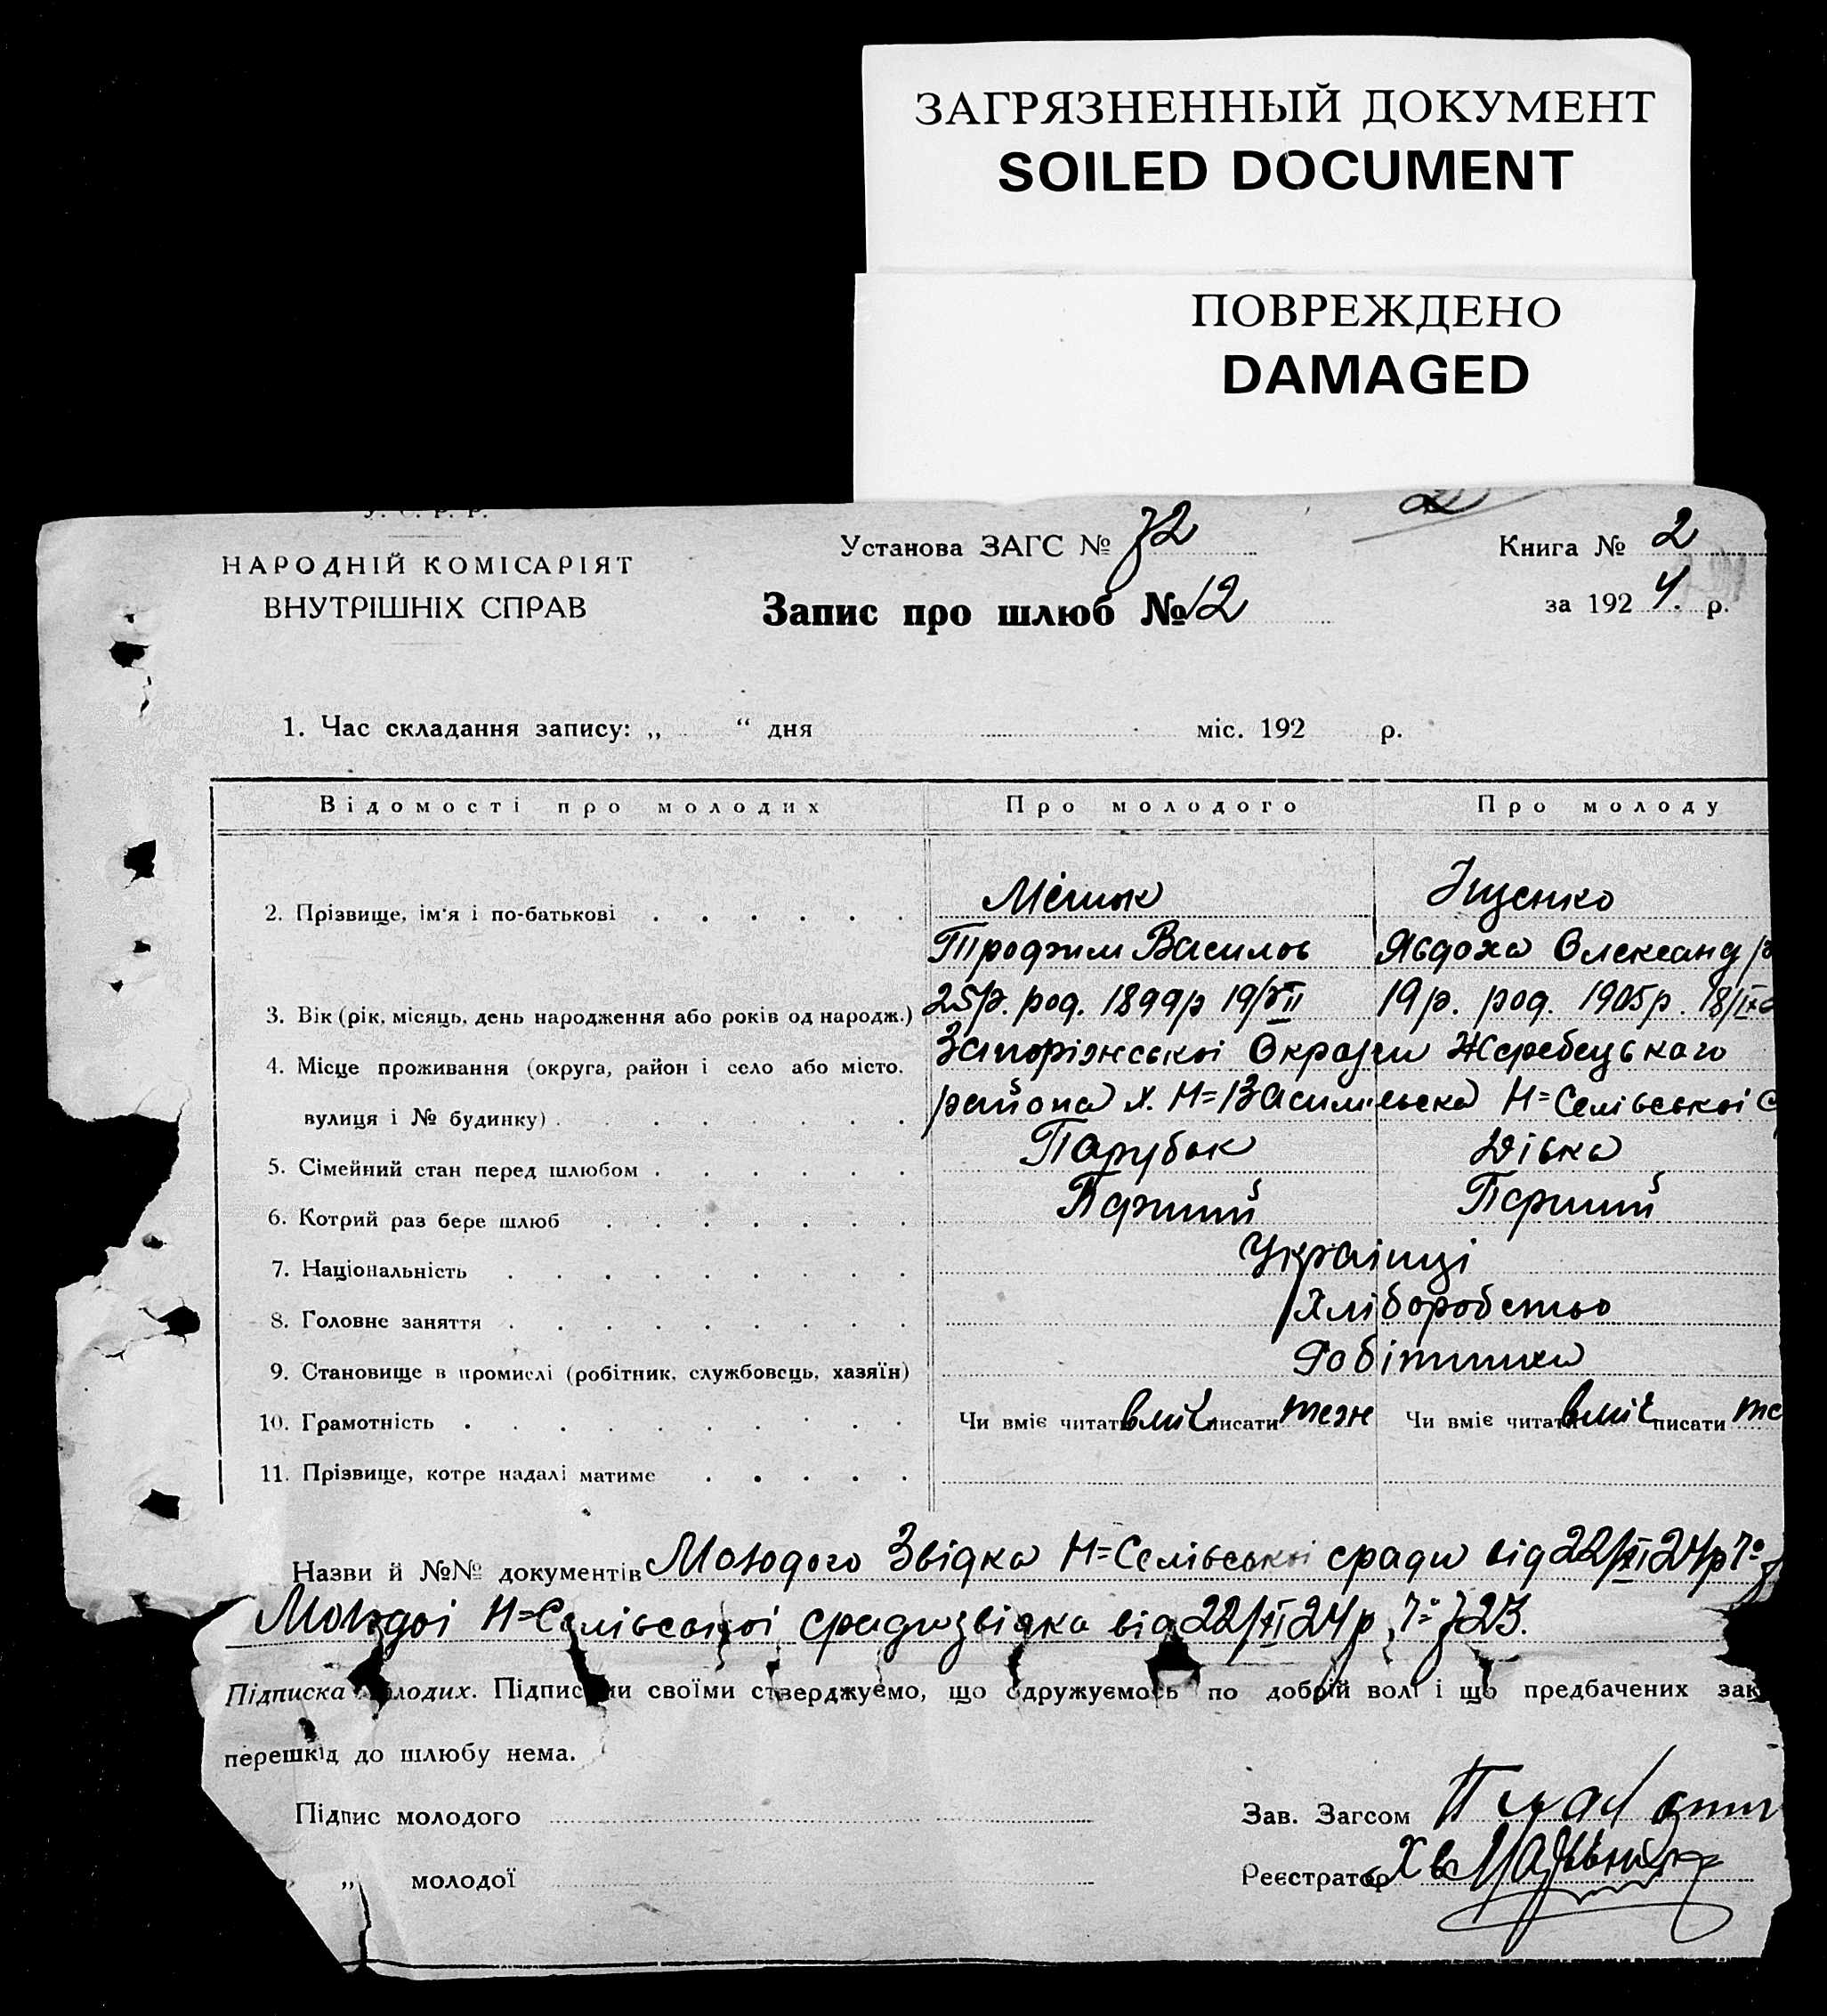 ЗАГРЯЗНЕННЫЙ ДОКУМЕНТ
SOILED DOCUMENT
ПОВРЕЖДЕНО
DAMAGED
У. С. Р. Р.
НАРОДНІЙ КОМІСАРІЯТ
ВНУТРІШНІХ СПРАВ
Установа ЗАГС № 72
Запис про шлюб № 12
Книга № 2
за 1924. р.
1. Час складання запису: „ “ дня міс. 192 р.
Відомості про молодих Про молодого Про молоду
2. Прізвище, ім'я і по-батькові Іщенко
Трофим Василов Явдоха Олександр
3. Вік (рік, місяць, день народження або років од народж.) 25р. род. 1899р 19/VII 19р. род. 1905р. 18/IX
4. Місце проживання (округа, район і село або місто. Запоріжської Округи Жеребецького
вулиця і № будинку) района х. Н=Васильевка Н=Селівської С
5. Сімейний стан перед шлюбом Парубок Дівка
6. Котрий раз бере шлюб Перший Перший
7. Національність Українці
8. Головне заняття Хліборобство
9. Становище в промислі (робітник, службовець, хазяїн) Робітники
10. Грамотність Чи вміє читати вміє писати теж Чи вміє читати вміє писати те
11. Прізвище, котре надалі матиме
Назви й №№ документів Молодого Звідка Н=Селівської сради від 22/XI 24р № 7
Молодої Н=Селівської сради звідка від 22/XI 24р. № 723.
Підписка молодих. Підписами своїми стверджуємо, що одружуємось по добрій волі і що предбачених зак
перешкід до шлюбу нема.
Підпис молодого
Зав. Загсом
„ молодої
Реєстратор